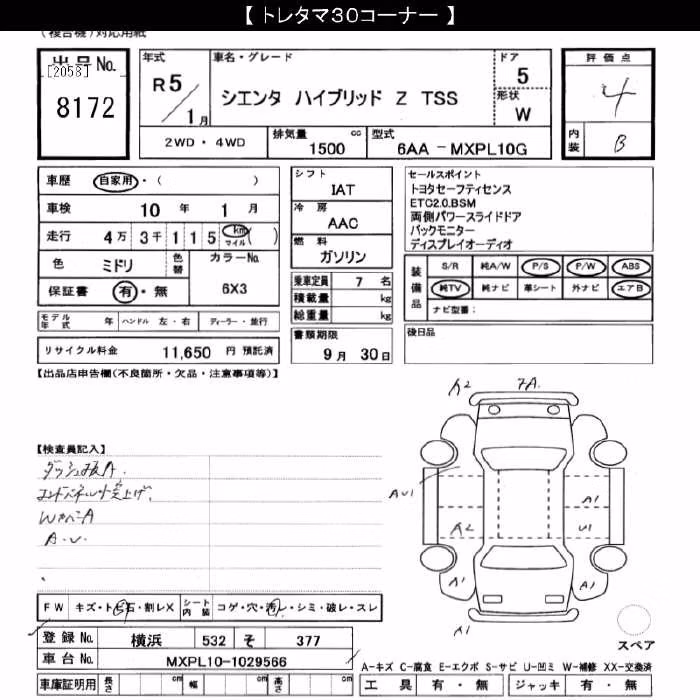 【 トレタマ30コーナー 】
(複合機)対応用紙
出品No.
[2058]
8172
年式
R5
1月
車名・グレード
シエンタ ハイブリッド Z TSS
ドア
5
形状
W
2WD・4WD
排気量 1500 cc
型式 6AA - MXPL10G
評価点
4
内装 B
車歴 自家用・( )
車検 10年 1月
走行 4万3千115 km マイル ( )
色 ミドリ 色替
カラーNo. 6X3
保証書 有・無
シフト
IAT
冷房
AAC
燃料
ガソリン
乗車定員 7名
積載量 kg
総重量 kg
セールスポイント
トヨタセーフティセンス
ETC2.0.BSM
両側パワースライドドア
バックモニター
ディスプレイオーディオ
装備品
S/R 純A/W P/S P/W ABS
純TV 純ナビ 革シート 外ナビ エアB
ナビ型番:
モデル年式 年 ハンドル 左・右 ディーラー・並行
リサイクル料金 11,650 円 預託済
書類期限
9月 30日
後日品
【出品店申告欄(不良箇所・欠品・注意事項等)】
【検査員記入】
ダッシュ板A.
WカベーA
A.U.
A2 7A.
AU1 A1
A2 U1
A1 A1
A1
FW キズ・トビ石・割レX シート内装 コゲ・穴・汚レ・シミ・破レ・スレ
登録No. 横浜 532 そ 377
車台No. MXPL10-1029566
スペア
A-キズ C-腐食 E-エクボ S-サビ U-凹ミ W-補修 XX-交換済
車庫証明用 長さ cm 幅 cm 高さ cm
工具 有・無 ジャッキ 有・無